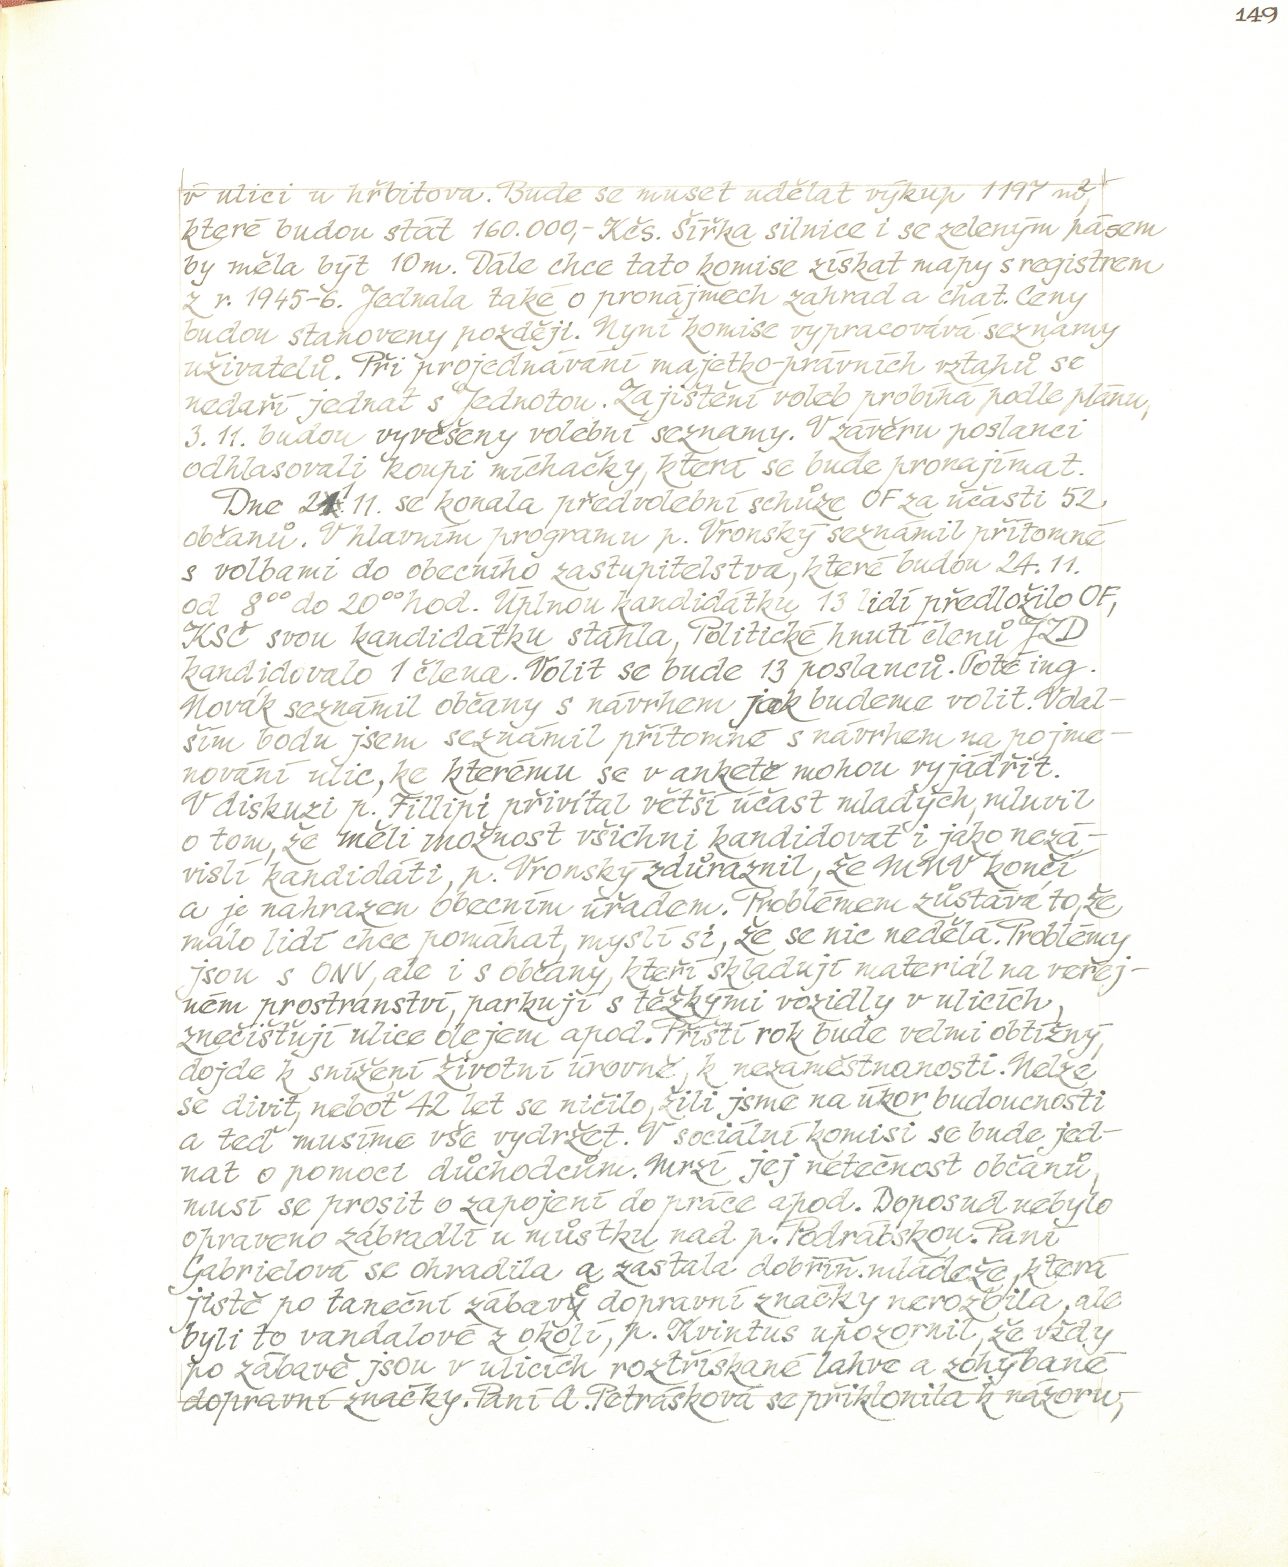 149
v ulici u hřbitova. Bude se muset udělat výkup 1197 m²,
které budou stát 160.000,- Kčs. Šířka silnice i se zeleným pásem
by měla být 10 m. Dále chce tato komise získat mapy s registrem
z r. 1945-6. Jednala také o pronájmech zahrad a chat. Ceny
budou stanoveny později. Nyní komise vypracovává seznamy
uživatelů. Při projednávání majetko-právních vztahů se
nedaří jednat s Jednotou. Zajištění voleb probíhá podle plánu,
3. 11. budou vyvěšeny volební seznamy. V závěru poslanci
odhlasovali koupi míchačky, která se bude pronajímat.
Dne 11. se konala předvolební schůze OF za účasti 52
občanů. V hlavním programu p. Vronský seznámil přítomné
s volbami do obecního zastupitelstva, které budou 24. 11.
od 8⁰⁰ do 20⁰⁰ hod. Úplnou kandidátku 13 lidí předložilo OF,
KSČ svou kandidátku stáhla, Politické hnutí členů JZD
kandidovalo 1 člena. Volit se bude 13 poslanců. Poté ing.
Novák seznámil občany s návrhem jak budeme volit. V dal-
ším bodu jsem seznámil přítomné s návrhem na pojme-
nování ulic, ke kterému se v anketě mohou vyjádřit.
V diskuzi p. Fillipi přivítal větší účast mladých, mluvil
o tom, že měli možnost všichni kandidovat i jako nezá-
vislí kandidáti, p. Vronský zdůraznil, že MNV končí
a je nahrazen obecním úřadem. Problémem zůstává to, že
málo lidí chce pomáhat, myslí si, že se nic nedělá. Problémy
jsou s ONV, ale i s občany, kteří skladují materiál na veřej-
ném prostranství, parkují s těžkými vozidly v ulicích,
znečišťují ulice olejem apod. Příští rok bude velmi obtížný,
dojde k snížení životní úrovně, k nezaměstnanosti. Nelze
se divit, neboť 42 let se ničilo, žili jsme na úkor budoucnosti
a teď musíme vše vydržet. V sociální komisi se bude jed-
nat o pomoci důchodcům. Mrzí jej netečnost občanů,
musí se prosit o zapojení do práce apod. Doposud nebylo
opraveno zábradlí u můstku nad p. Podrábskou. Paní
Gabrielová se ohradila a zastala dobříň. mládeže, která
jistě po taneční zábavě dopravní značky nerozbila, ale
byli to vandalové z okolí, p. Kvintus upozornil, že vždy
po zábavě jsou v ulicích roztřískané lahve a zohýbané
dopravní značky. Paní A. Petrásková se přiklonila k názoru,